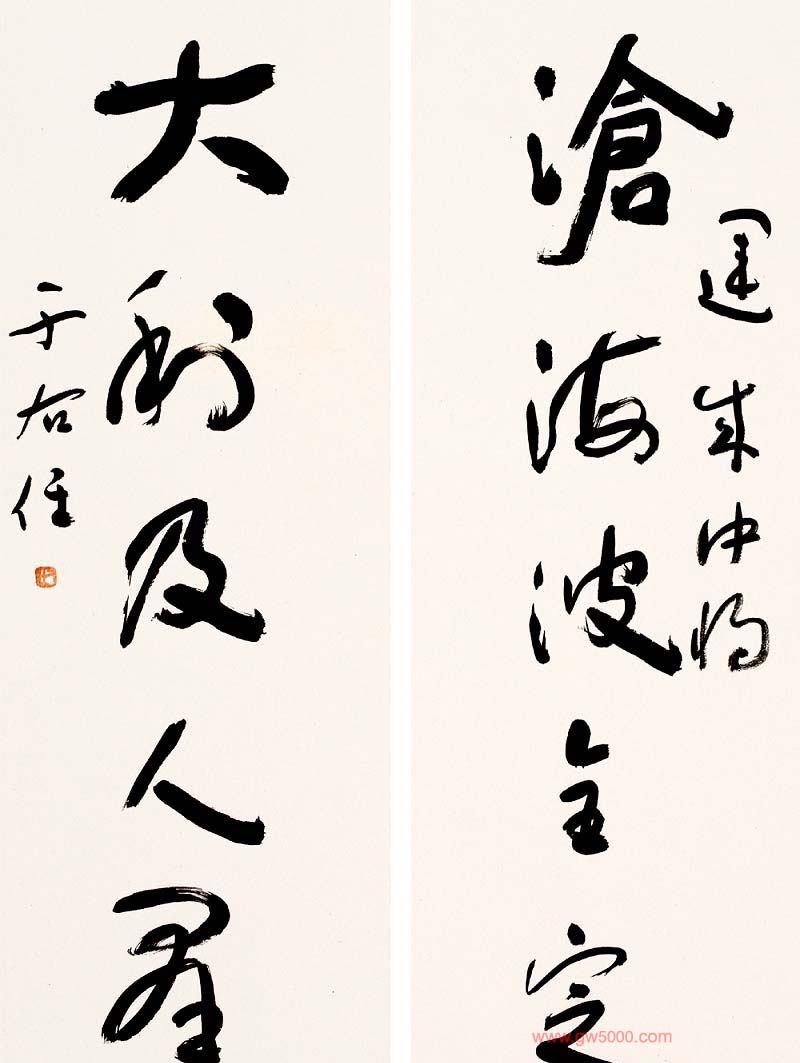 運成中將
滄海波全定
大利及人羣
于右任
www.gw5000.com